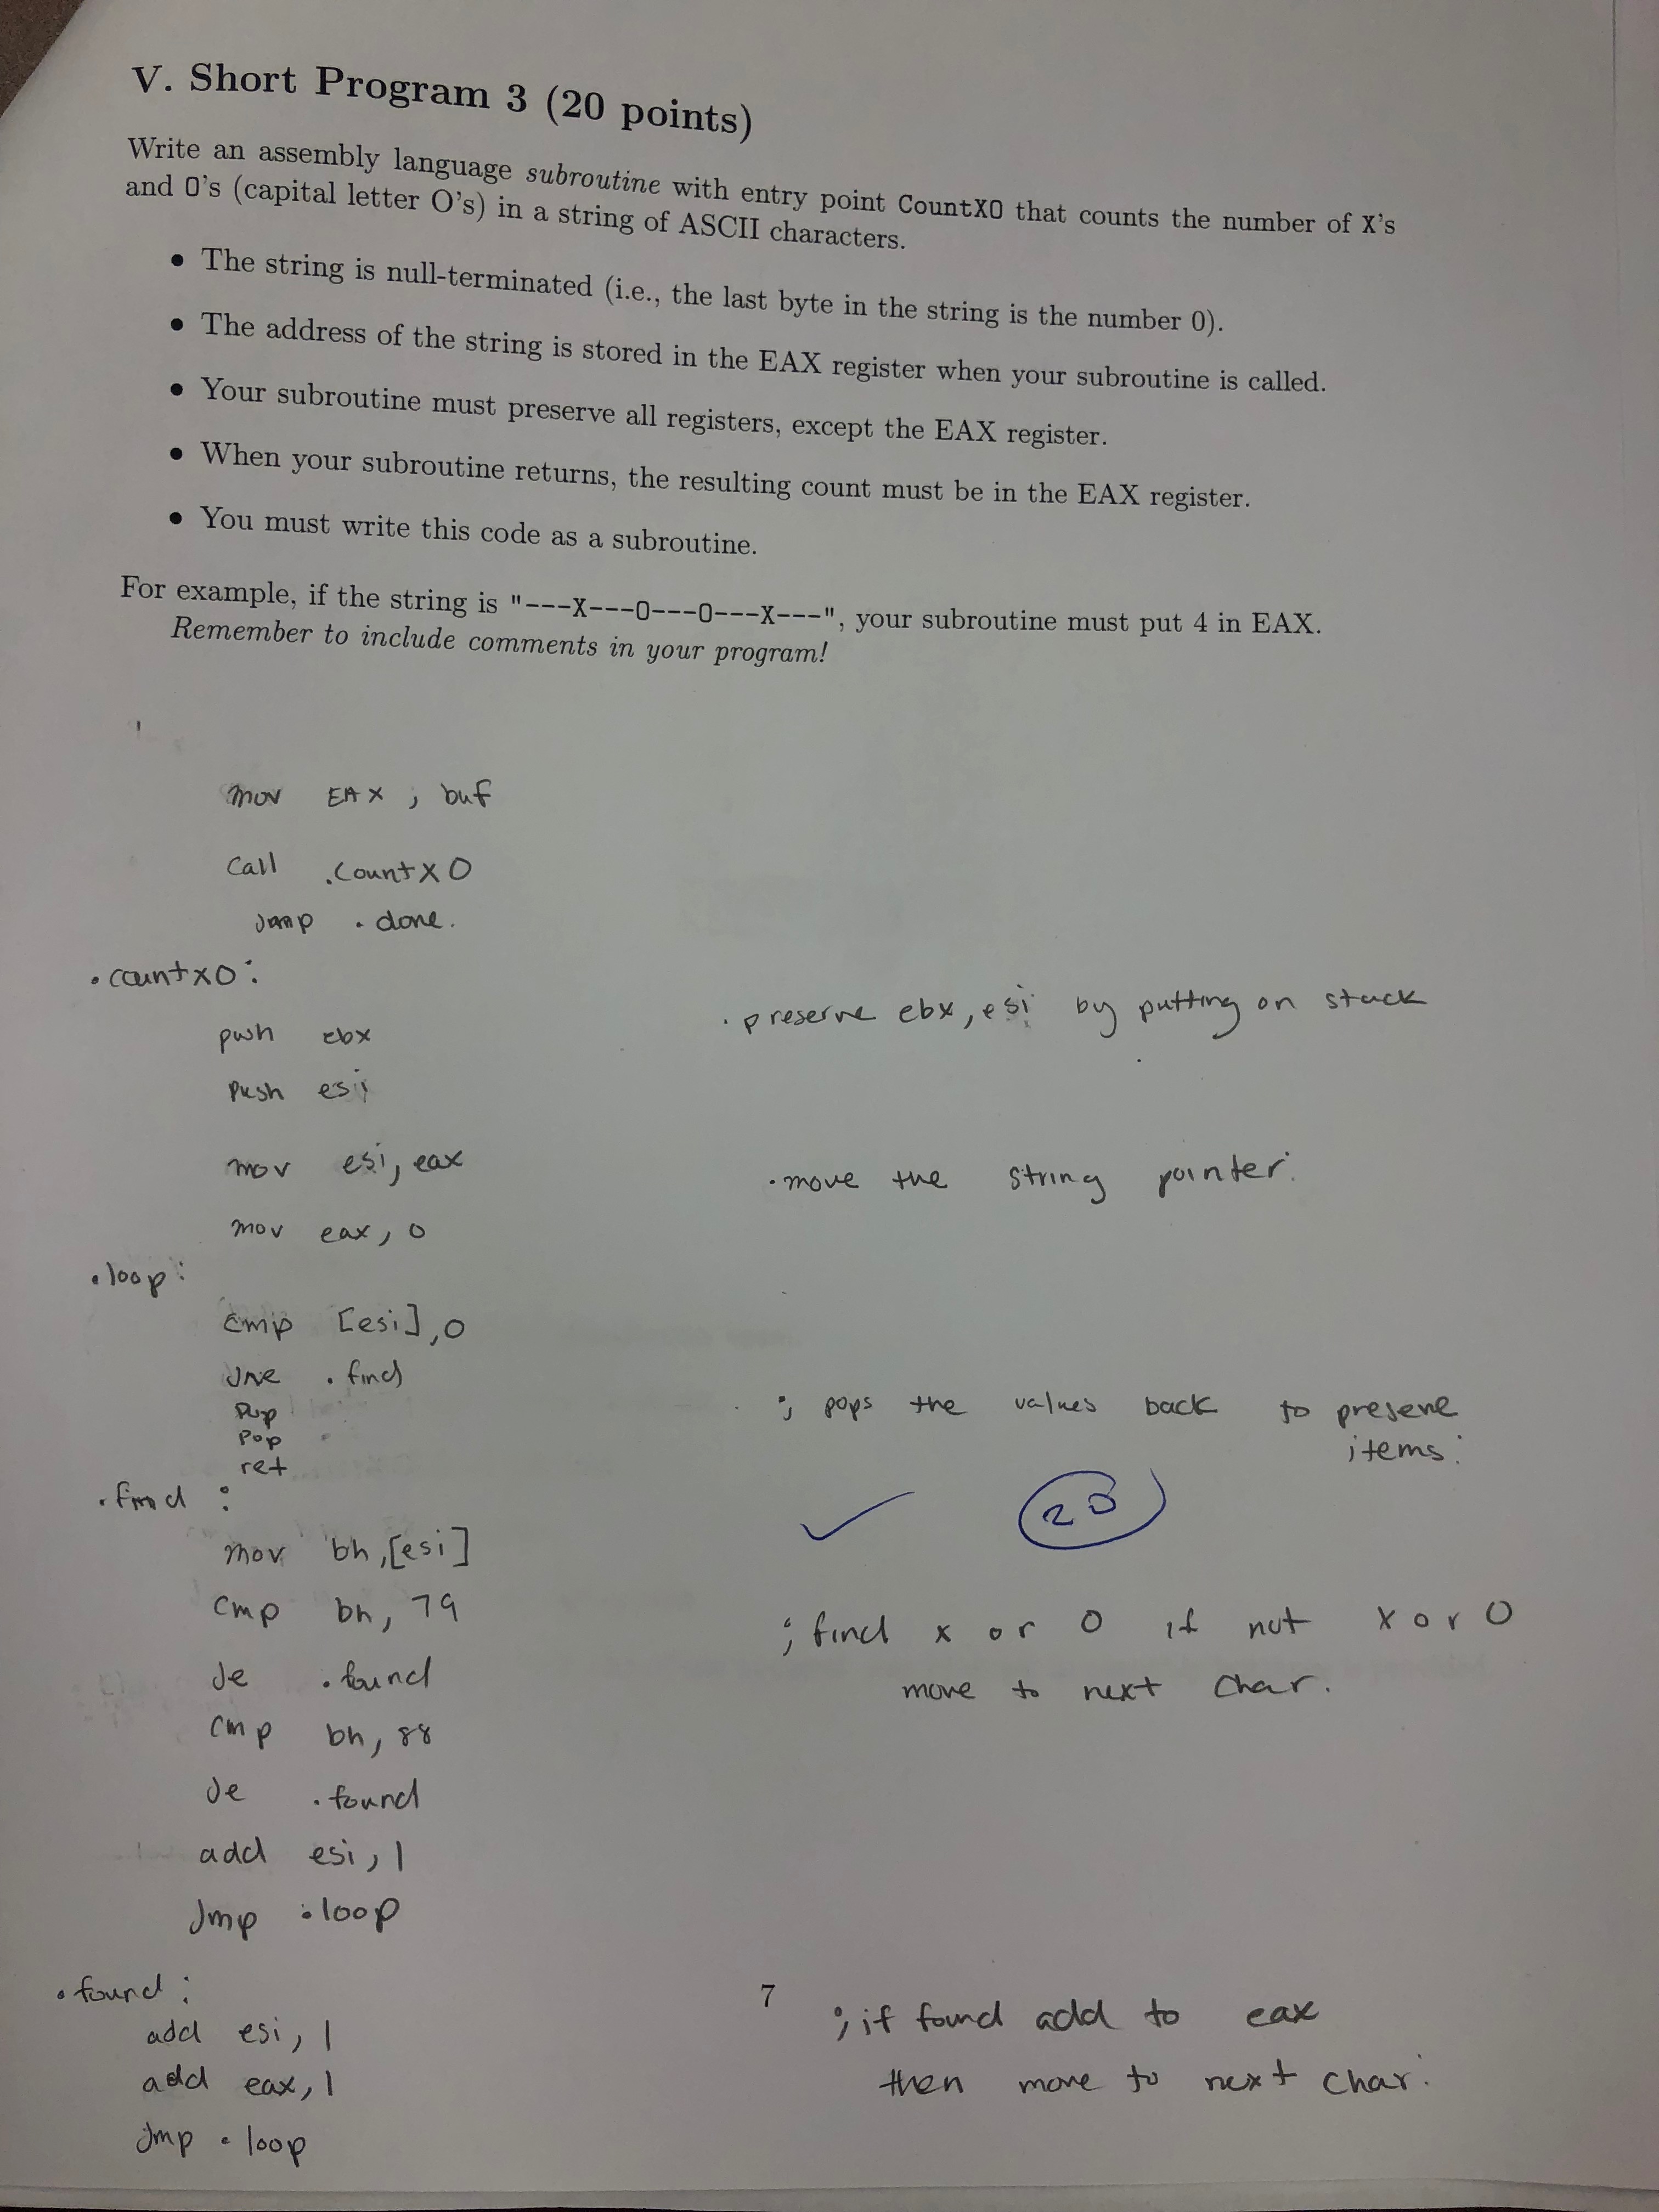 V. Short Program 3 (20 points)
Write an assembly language subroutine with entry point CountXO that counts the number of X's
and O's (capital letter O's) in a string of ASCII characters.
• The string is null-terminated (i.e., the last byte in the string is the number 0).
• The address of the string is stored in the EAX register when your subroutine is called.
• Your subroutine must preserve all registers, except the EAX register.
• When your subroutine returns, the resulting count must be in the EAX register.
• You must write this code as a subroutine.
For example, if the string is "---X---O---O---X---", your subroutine must put 4 in EAX.
Remember to include comments in your program!
mov EAX, buf
call .countXO
jmp .done.
.countxO:
push ebx .preserve ebx, esi by putting on stack
push esi
mov esi, eax .move the string pointer.
mov eax, 0
.loop:
cmp [esi], 0
Jne .find
pop ; pops the values back to preserve
pop items.
ret
.find :
mov bh, [esi] ✓ 20
cmp bh, 79 ; find x or O if not X or O
Je .found move to next char.
cmp bh, 88
Je .found
add esi, 1
Jmp .loop
.found :
7
add esi, 1 ; if found add to eax
add eax, 1 then move to next char.
Jmp .loop